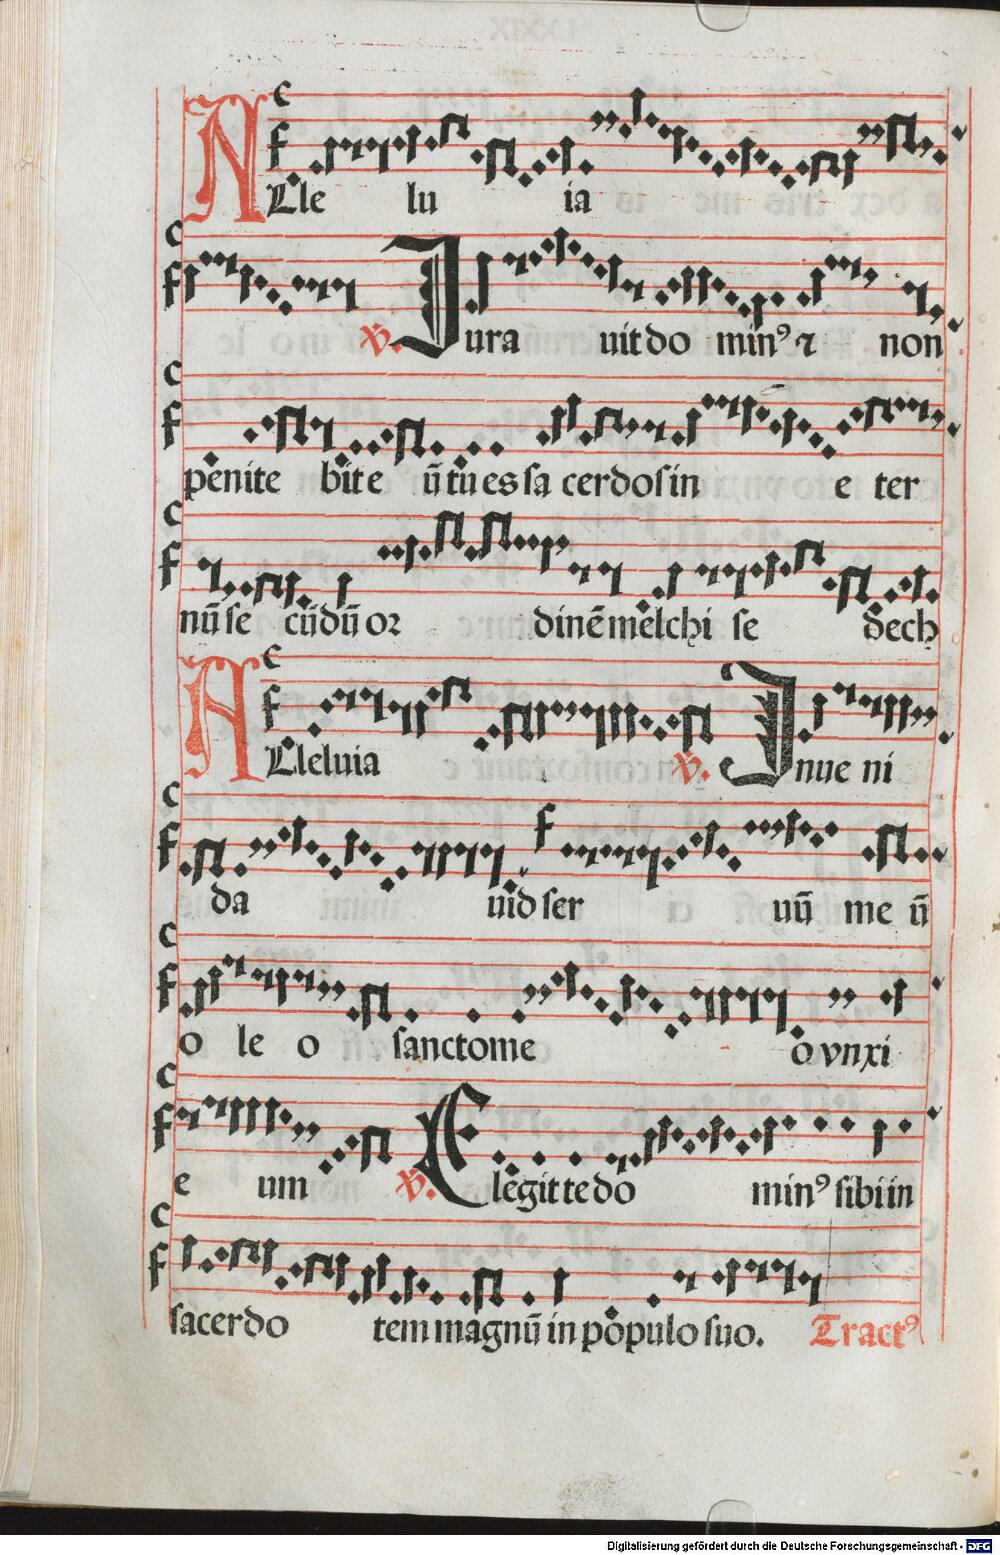 ALle lu ia
℣. Jura uit do minꝰ ⁊ non
penite bit e ū tu es sa cerdos in e ter
nū se cūdū oꝛ dinē melchi se dech
ALleluia ℣. Inue ni
da uid ser uū me ū
o le o sancto me o vnxi
e um ℣. Elegit te do minꝰ sibi in
sacerdo tem magnū in populo suo. Tractꝰ
Digitalisierung gefördert durch die Deutsche Forschungsgemeinschaft - DFG